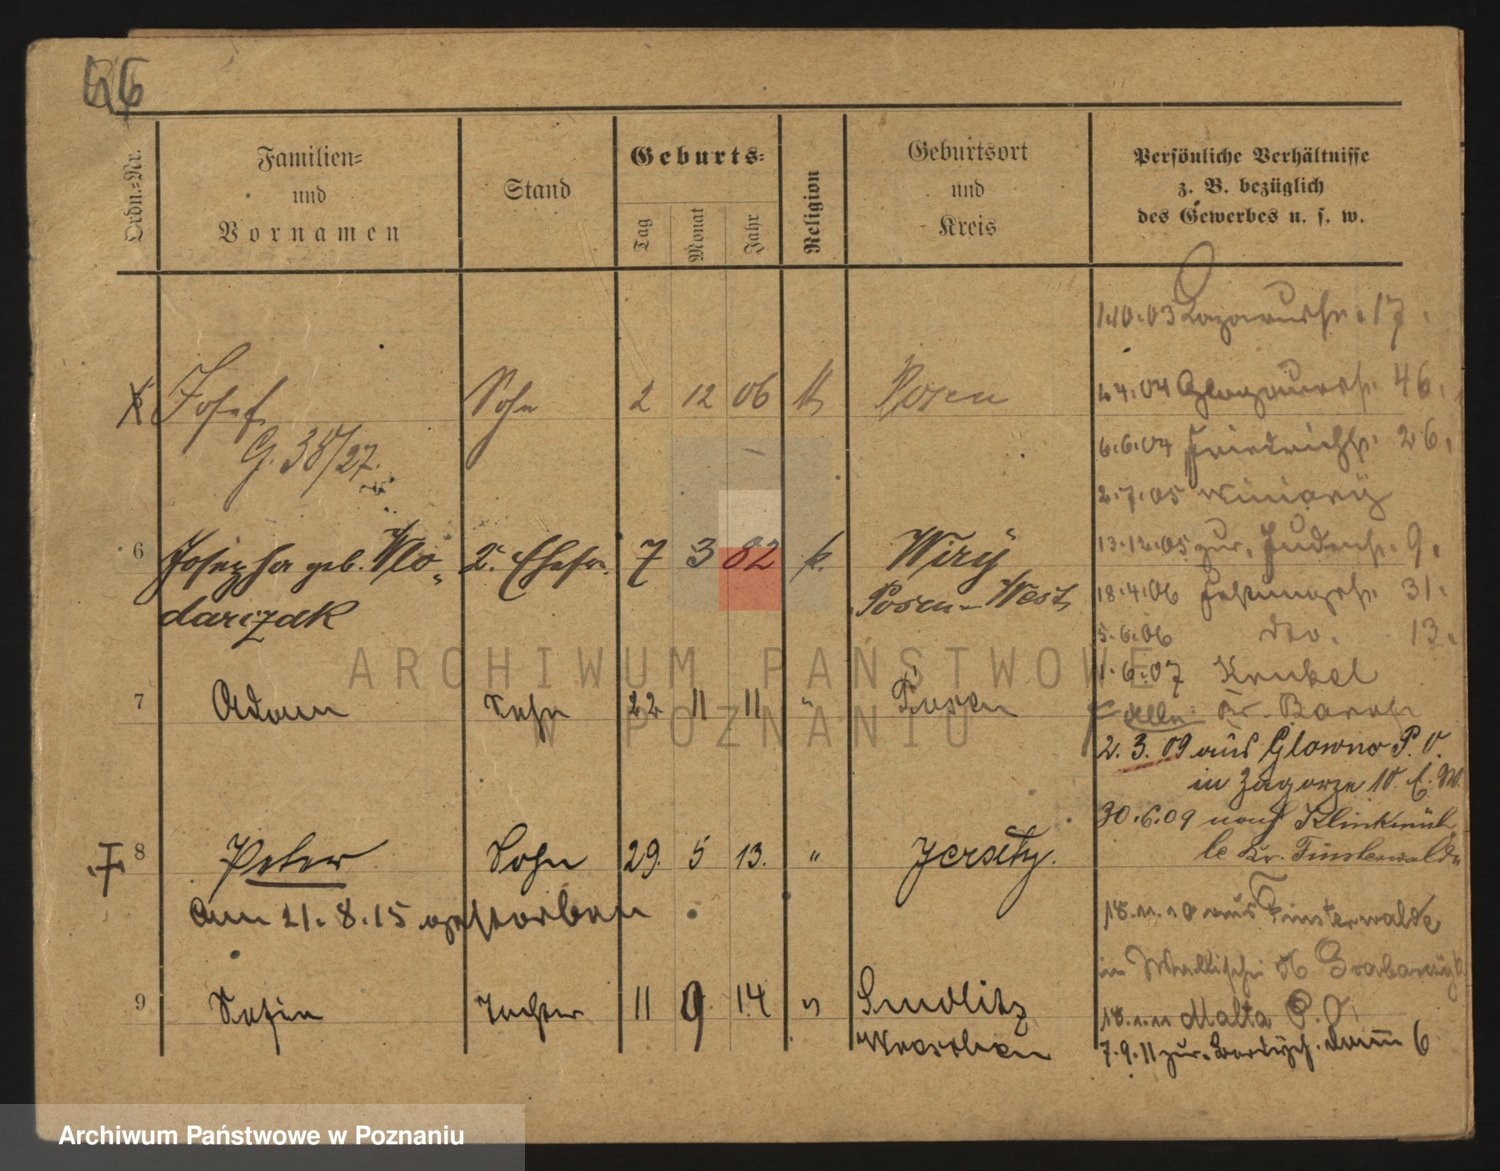 Ordn.=Nr.
Familien=
und
Vornamen
Stand
Geburts=
Tag
Monat
Jahr
Religion
Geburtsort
und
Kreis
Persönliche Verhältnisse
z. B. bezüglich
des Gewerbes u. s. w.
Josef Sohn 2 12 06 Posen
G. 38/27.
6 Josepha geb. Wlo 2. Ehefr. 7 3 82 k. Wiry
darczak Posen-West
7 Adam Sohn 22 11 11 " Posen
8 Peter Sohn 29. 5 13. " Jersitz.
Am 21.8.15 gestorben
9 Tochter 11 9 14 "
Wreschen
1.10.03 17.
4.04 Glogauerstr. 46.
6.6.04 Friedrichstr. 26.
2.7.05 Winiary
13.12.05 zur. Judenstr. 9.
18.4.06 31.
5.6.06 dto. 13.
1.6.07
2.3.09 aus Glowno P. O.
in Zagorze 10.
30.6.09 nach Klinkmüh
le Kr. Finsterwalde
18.11.10 aus Finsterwalde
in Wallischei 56
18.1.11 Malta P. O.
7.9.11 zur. 6
ARCHIWUM PAŃSTWOWE
W POZNANIU
Archiwum Państwowe w Poznaniu